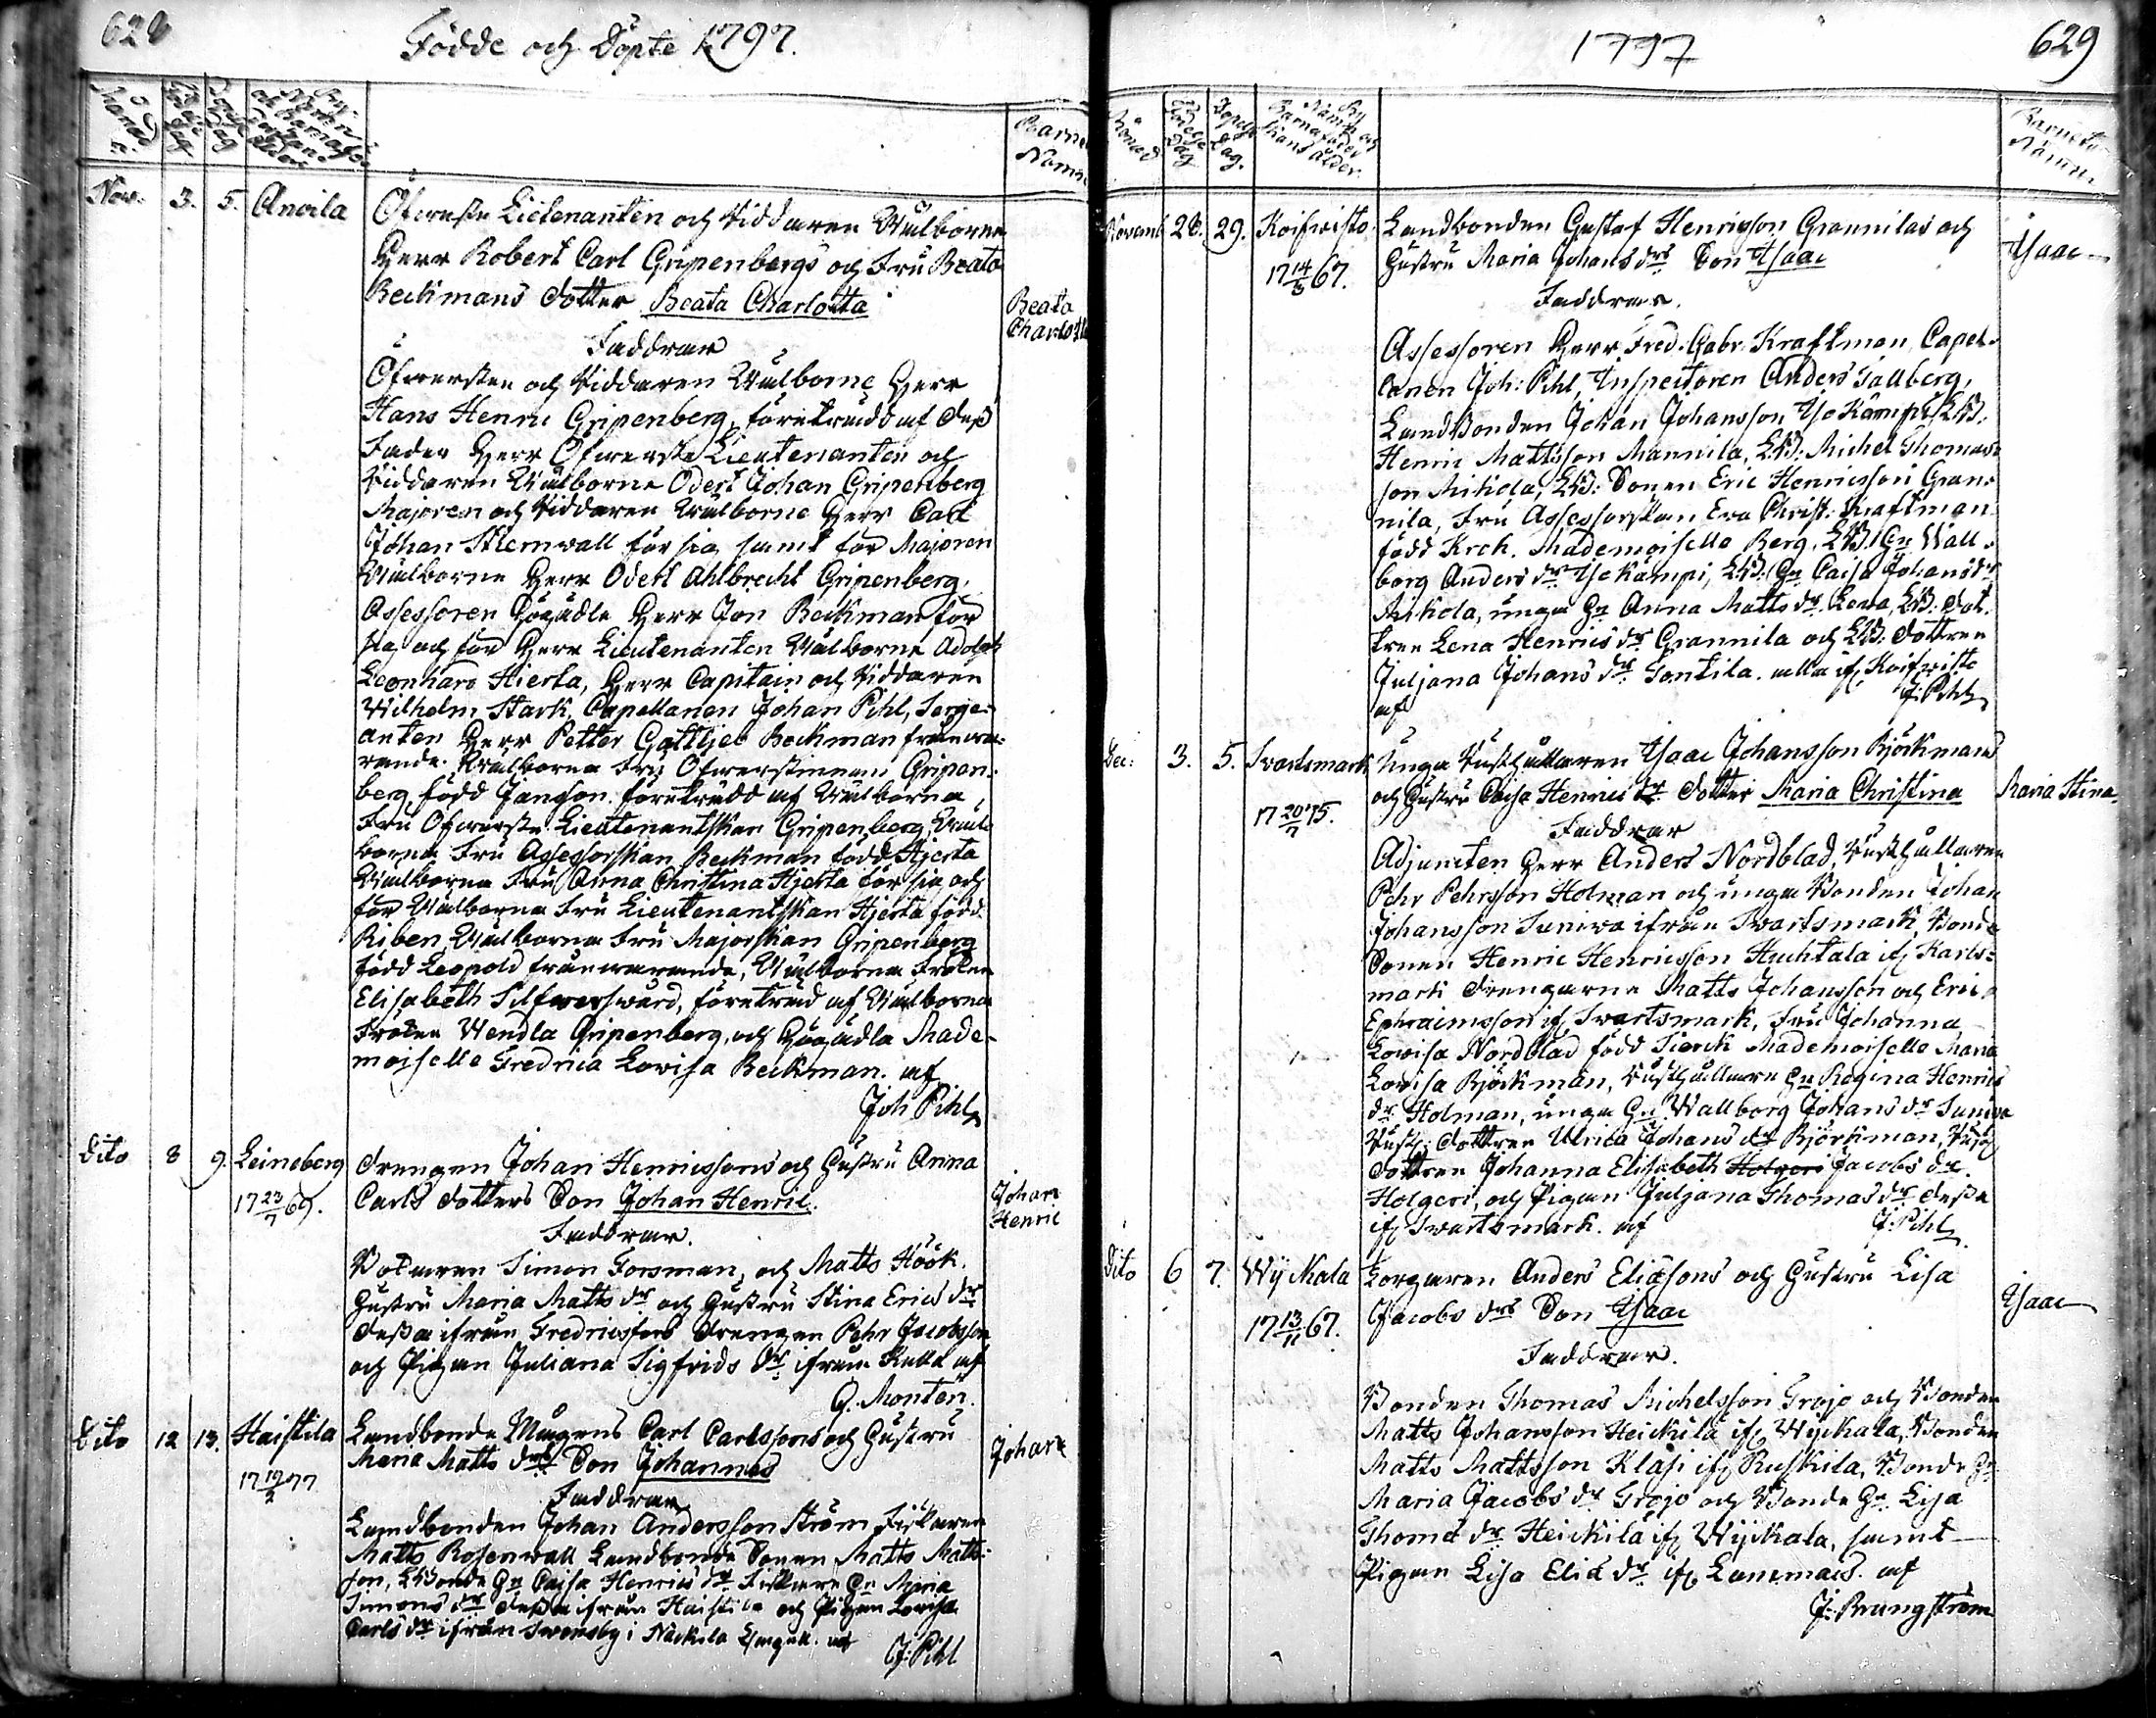 628
Födde och Döpte 1797.
Månad
Födelse Dag
Döpelse Dag
Barnets Namn
Nov. 3. 5. Anoila
Öfwerste Lieutenanten och Riddaren Wälborne
Herr Robert Carl Gripenbergs och Fru Beata
Beckmans dotter Beata Charlotta
Beata
Charlotta
Faddrar
Öfwersten och Riddaren Wälborne Herr
Hans Henric Gripenberg, företrädd af dess
Fader Herr Öfwerste Lieutenanten och
Riddaren Wälborne Odert Johan Gripenberg
Majoren och Riddaren Wälborne Herr Carl
Johan Stiernwall för sig samt för Majoren
Wälborne Herr Odert Ahlbrecht Gripenberg,
Assessoren Högädle Herr Jon Beckman för
sig och för Herr Lieutenanten Wälborne Adolph
Leonhard Hierta, Herr Capitain och Riddaren
Wilhelm Stark, Capellanen Johan Pihl, Serge-
anten Herr Petter Gottlieb Beckman frånwa-
rande. Wälborna Fru Öfwerstinnan Gripen-
berg född Janson företrädd af Wälborna
Fru Öfwerste Lieutenantskan Gripenberg, Wäl-
borna Fru Assessorskan Beckman född Hjerta
Wälborna Fru Anna Christina Hjerta för sig och
för Wälborna Fru Lieutenantskan Hjerta född
Riben, Wälborna Fru Majorskan Gripenberg
född Leopold frånwarande, Wälborna Fröken
Elisabeth Silfwerswärd, företräd af Wälborna
Fröken Wendla Gripenberg, och Högädla Made-
moiselle Fredrica Lovisa Beckman. af
Joh Pihl
dito 8 9. Leineberg
17 23/7 69.
drengen Johan Henricssons och Hustru Anna
Carls dotters Son Johan Henric.
Johan
Henric
Faddrar.
Simon Forsman, och Matts Höök.
Hustru Maria Matts dr och Hustru Stina Erics dr
dessa ifrån Fredricsfors drengen Pehr Jacobsson
och Pigan Juliana Sigfrids dr ifrån Kulla af
G. Monten.
dito 12 13. Haistila
17 19/2 77
Landbonde Mågens Carl Carlssons och Hustru
Maria Matts drs Son Johannes
Johan
Faddrar
Landbonden Johan Andersson Ström Fiskaren
Matts Rosenwall Landbonde Sonen Matts Matts-
son, LBonde Hu Caisa Henrics dr Fiskare Hu Maria
Simons dr dessa ifrån Haistila och Pigan Lovisa
Carls dr ifrån Swensby i Näckila Capell. af
J: Pihl
1797
629
Månad
Födelse Dag
Döpelse Dag.
By Namn och Barnafader Hans ålder.
Barnets Namn
Novemb 28. 29. Koifwisto
17 14/3 67.
Landbonden Gustaf Henricsson Grannilas och
Hustru Maria Johans drs Son Isaac
Isaac
Faddrar.
Assessoren Herr Fred. Gabr. Kraftman, Capel-
lanen Joh: Pihl, Inspectoren Anders Tallberg,
Landbonden Johan Johansson Iso Kämpi, LB.
Henric Mattsson Mannila, LB: Michel Thomas-
son Mikola, LB: Sonen Eric Henricsson Gran-
nila, Fru Assessorskan Eva Christ: Kraftman
född Krok. Mademoiselle Berg, LB: Hu Wall-
borg Anders dr Iso Kämpi, LB: Hu Caisa Johans dr
Mikola, unga Hu Anna Matts dr Lena, LB: dot-
tren Lena Henrics dr Grannila och LB: dottren
Juljana Johans dr Tontila. alla if. Koifwisto
af
J: Pihl
Dec: 3. 5. Svartsmark
17 20/7 75.
Unga Rusthållaren Isaac Johansson Björkmans
och Hustru Caisa Henrics dr dotter Maria Christina
Maria Stina
Faddrar
Adjuncten Herr Anders Nordblad, Rusthållaren
Pehr Pehrsson Holman och unga Bonden Johan
Johansson Suniva ifrån Swartsmark, Bonde
Sonen Henric Henricsson Huchtala if. Karls-
mark drengarna Matts Johansson och Eric
Ephraimsson if. Swartsmark, Fru Johanna
Lovisa Nordblad född Tierck Mademoiselle Maria
Lovisa Björkman, Rusthållare Hu Regina Henrics
dr Holman, unga Hu Wallborg Johans dr Suniva
Rusth: dottren Ulrica Johans dr Björkman, Rusth
dottren Johanna Elisabeth Holgeri Jacobs dr
Holgeri, och Pigan Juljana Thomas dr dessa
if. Swartsmark. af
J: Pihl
dito 6 7. Wijkala
17 13/11 67.
Torparen Anders Eliæsons och Hustru Lisa
Jacobs drs Son Isaac
Isaac
Faddrar.
Bonden Thomas Michelsson Trojo och Bonden
Matts Johansson Heickilä if. Wijkala, Bonden
Matts Mattsson Klasi if. Ruskila, Bonde Hu
Maria Jacobs dr Trojo och Bonde Hu Lisa
Thomæ dr Heickilä if. Wijkala, samt
Pigan Lisa Eliæ dr if. Lanemaes. af
J: Brungström